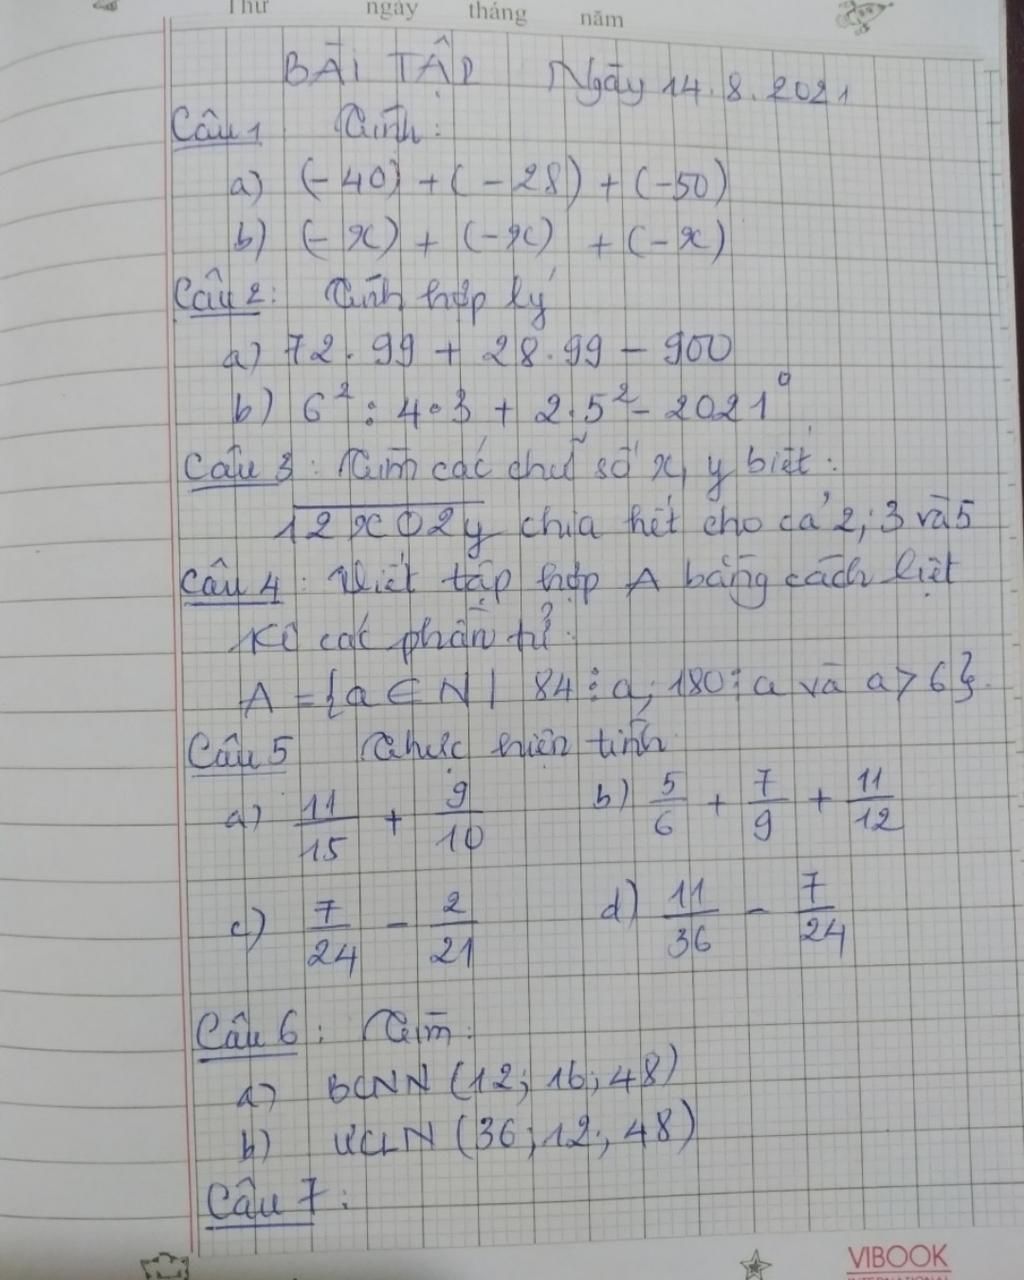 Thứ ngày tháng năm
BÀI TẬP Ngày 14.8.2021
Câu 1 Tính:
a) (-40) + (-28) + (-50)
b) (-x) + (-x) + (-x)
Câu 2: Tính hợp lý
a) 72.99 + 28.99 - 900
b) 6² : 4.3 + 2.5² - 2021⁰
Câu 3: Tìm các chữ số x, y biết:
12x02y chia hết cho cả 2; 3 và 5
Câu 4: Viết tập hợp A bằng cách liệt
kê các phần tử:
A = {a ∈ N | 84 ⋮ a; 180 ⋮ a và a > 6}.
Câu 5 Thực hiện tính
a) 11/15 + 9/10 b) 5/6 + 7/9 + 11/12
c) 7/24 - 2/21 d) 11/36 - 7/24
Câu 6: Tìm:
a) BCNN (12; 16; 48)
b) ƯCLN (36; 12; 48)
Câu 7:
VIBOOK